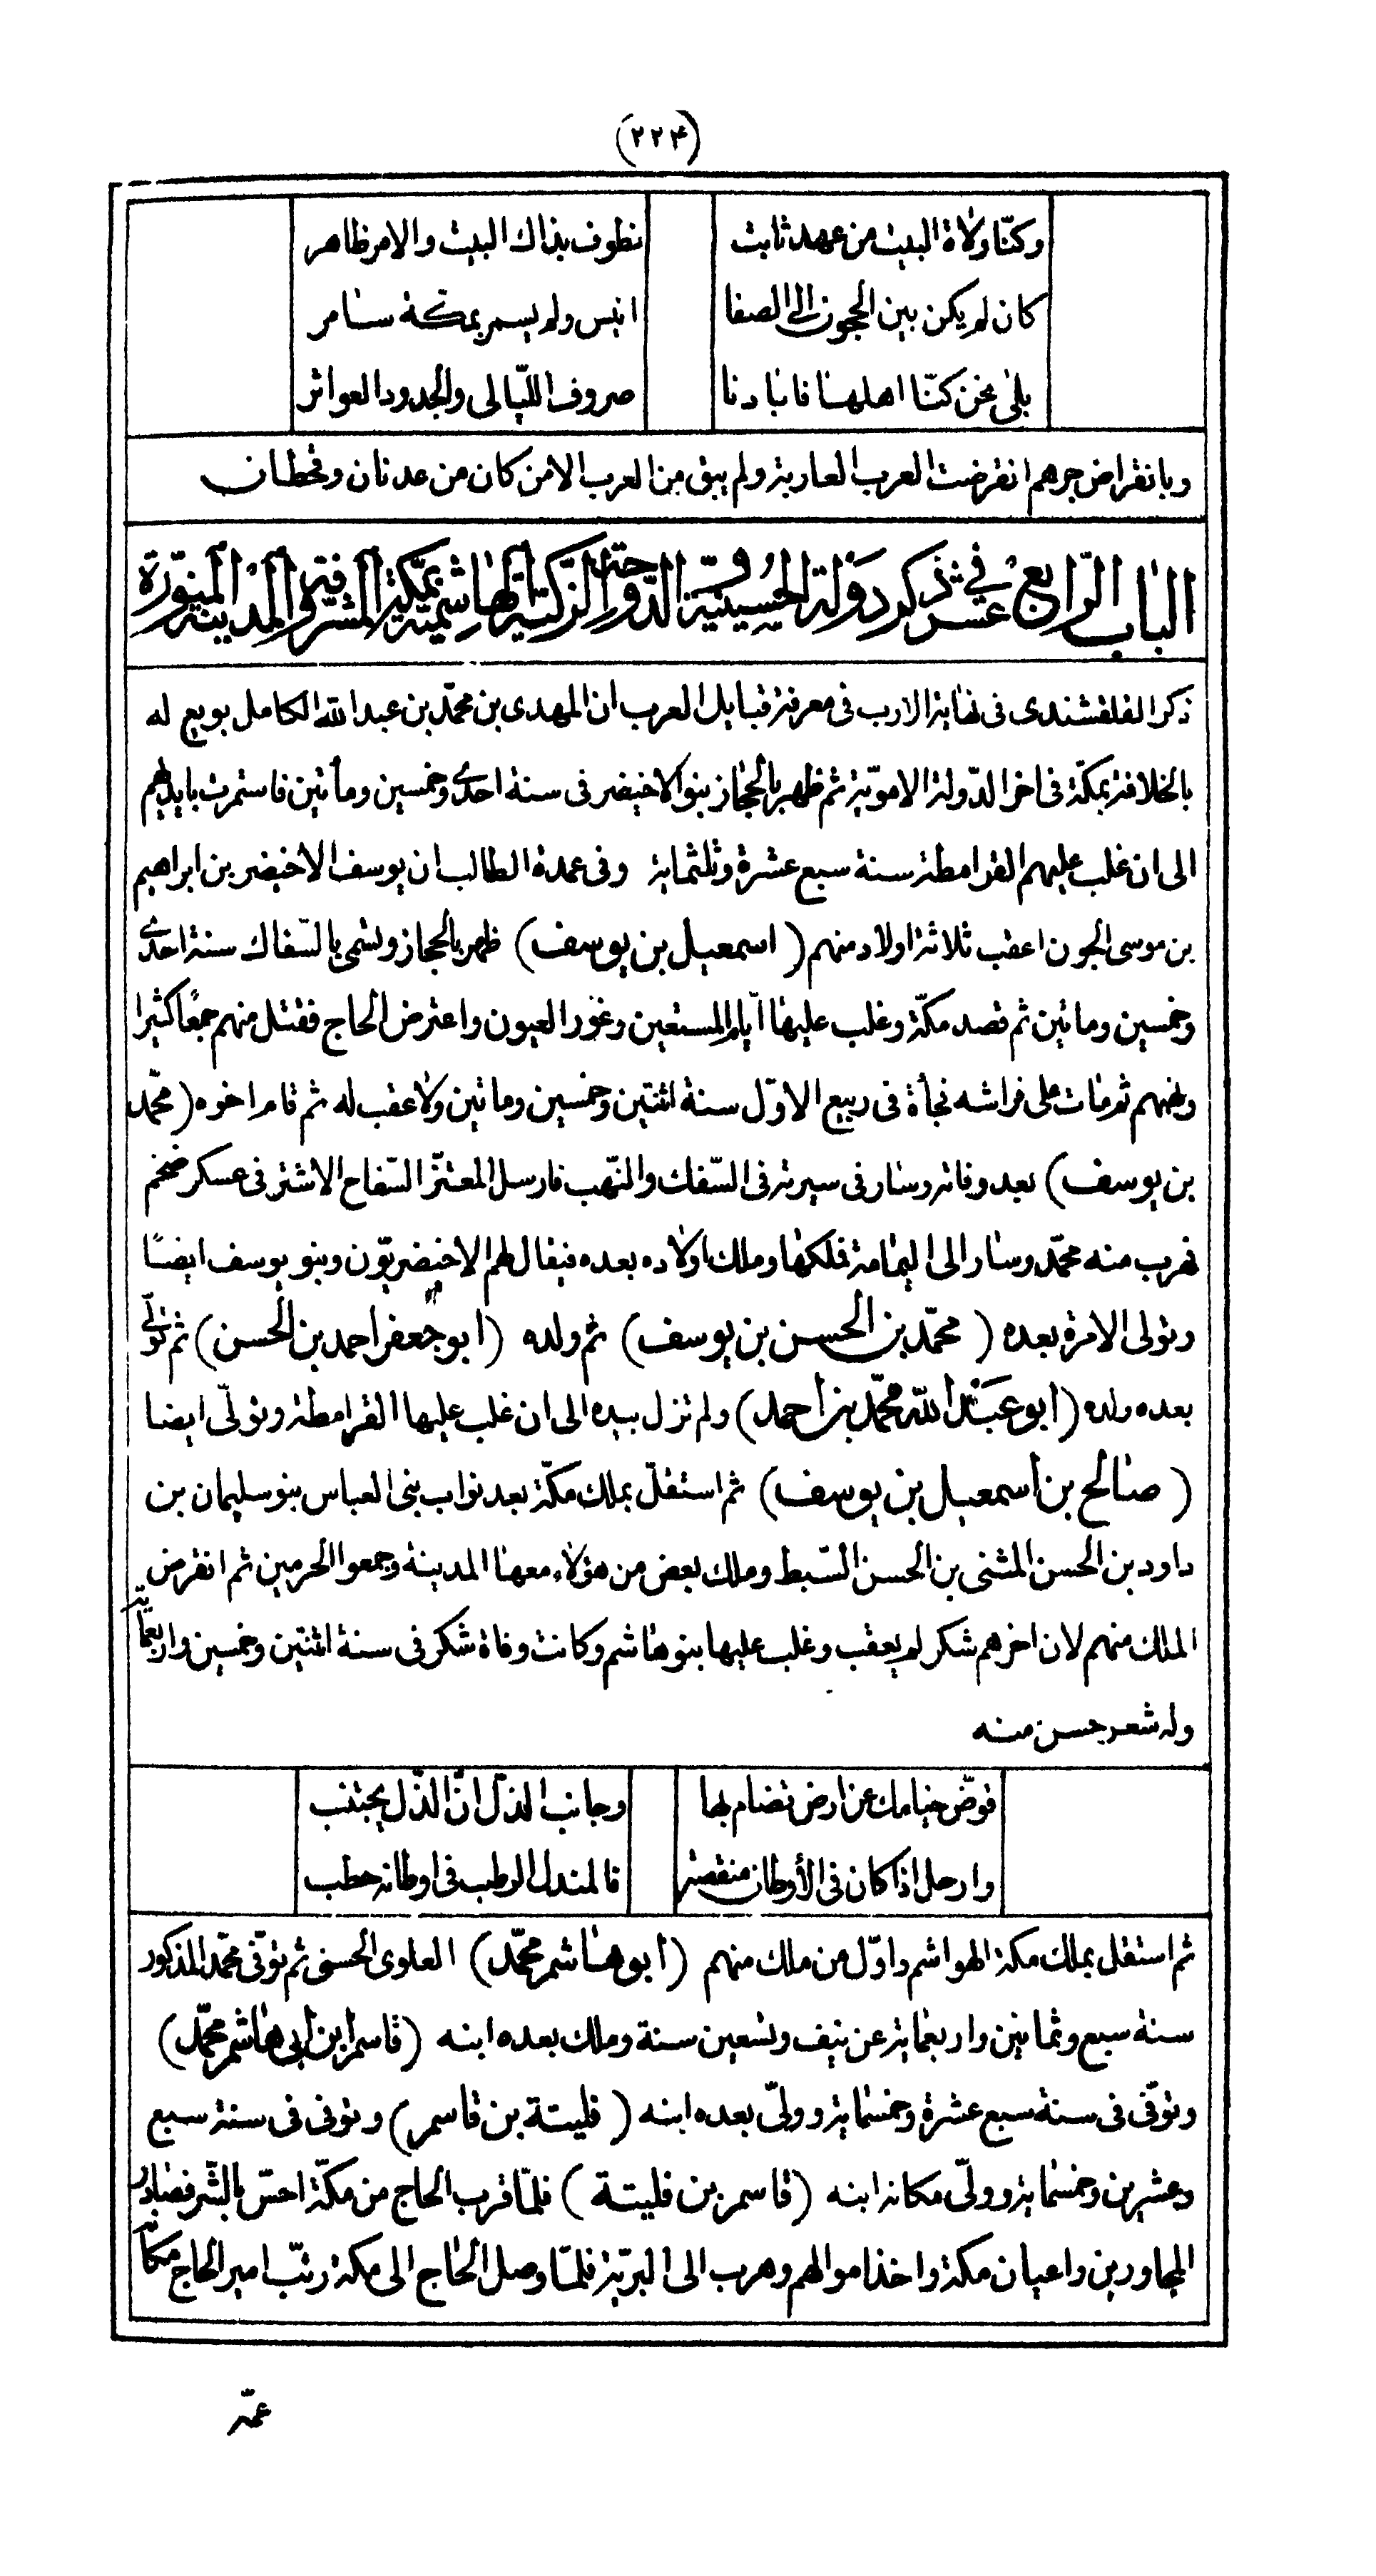 (٢٢۴)
وكنّا ولاة البيت من عهد ثابت نطوف بذاك البيت والامر ظاهر
كان لم يكن بين الحجون الى الصفا انيس ولم يسمر بمكة سامر
بلى نحن كنّا اهلها فابادنا صروف اللّيالى والجدود العواثر
وبانقراض جرهم انقرضت العرب العاربة ولم يبق من العرب الا من كان من عدنان وقحطان
الباب الرّابع عشر فى ذكر دولة الحسينيّة والدّوحة الزّكيّة الهاشميّة بمكّة المشرّفة والمدينة المنوّرة
ذكر القلقشندى فى نهاية الارب فى معرفة قبايل العرب ان المهدى بن محمّد بن عبد الله الكامل بويع له
بالخلافة بمكّة فى اخر الدّولة الامويّة ثم ظهر بالحجاز بنو الاخيضر فى سنة احدى وخمسين ومأتين فاستمرت بايديهم
الى ان غلب عليهم القرامطة سنة سبع عشرة وثلثماية وفى عمدة الطالب ان يوسف الاخيضر بن ابراهيم
بن موسى الجون اعقب ثلاثة اولاد منهم (اسمعيل بن يوسف) ظهر بالحجاز وتسمى بالسّفاك سنة احدى
وخمسين وماتين ثم قصد مكّة وغلب عليها ايّام المستعين وغور العيون واعترض الحاج فقتل منهم جمعًا كثيرا
ونهبهم ثم مات على فراشه فجأة فى ربيع الاوّل سنة اثنتين وخمسين وماتين ولا عقب له ثم قام اخوه (محمّد
بن يوسف) بعد وفاته وسار فى سيرته فى السّفك والنّهب فارسل المعتزّ السّفاح الاشتر فى عسكر ضخم
فهرب منه محمّد وسار الى اليمامة فملكها وملك اولاده بعده فيقال لهم الاخيضريّون وبنو يوسف ايضًا
وتولى الامرة بعده (محمّد بن الحسن بن يوسف) ثم ولده (ابو جعفر احمد بن الحسن) ثم تولّى
بعده ولده (ابو عبد الله محمّد بن احمد) ولم تزل بيده الى ان غلب عليها القرامطة وتولّى ايضا
(صالح بن اسمعيل بن يوسف) ثم استقلّ بملك مكّة بعد نواب بنى العباس بنو سليمان بن
داود بن الحسن المثنى بن الحسن السّبط وملك بعض من هؤلاء معها المدينة وجمعوا الحرمين ثم انقرض
الملك منهم لان اخرهم شكر لم يعقب وغلب عليها بنو هاشم وكانت وفاة شكر فى سنة اثنتين وخمسين واربعماية
وله شعر حسن منه
قوّض خيامك عن ارض تضام بها وجانب الذلّ انّ الذّل يجتنب
وارحل اذا كان فى الأوطان منقصة فالمندل الرطب فى اوطانه حطب
ثم استقل بملك مكة الهواشم واوّل من ملك منهم (ابو هاشم محمّد) العلوى الحسنى ثم توفّى محمّد المذكور
سنة سبع وثمانين واربعماية عن نيف وتسعين سنة وملك بعده ابنه (قاسم ابن ابى هاشم محمّد)
وتوفّى فى سنة سبع عشرة وخمسماية وولّى بعده ابنه (فليتة بن قاسم) وتوفى فى سنة سبع
وعشرين وخمسماية وولّى مكانه ابنه (قاسم بن فليتة) فلمّا قرب الحاج من مكّة احسّ بالشّر فصادر
المجاورين واعيان مكة واخذ اموالهم وهرب الى البريّة فلمّا وصل الحاج الى مكة رتّب امير الحاج مكانه
عمّه